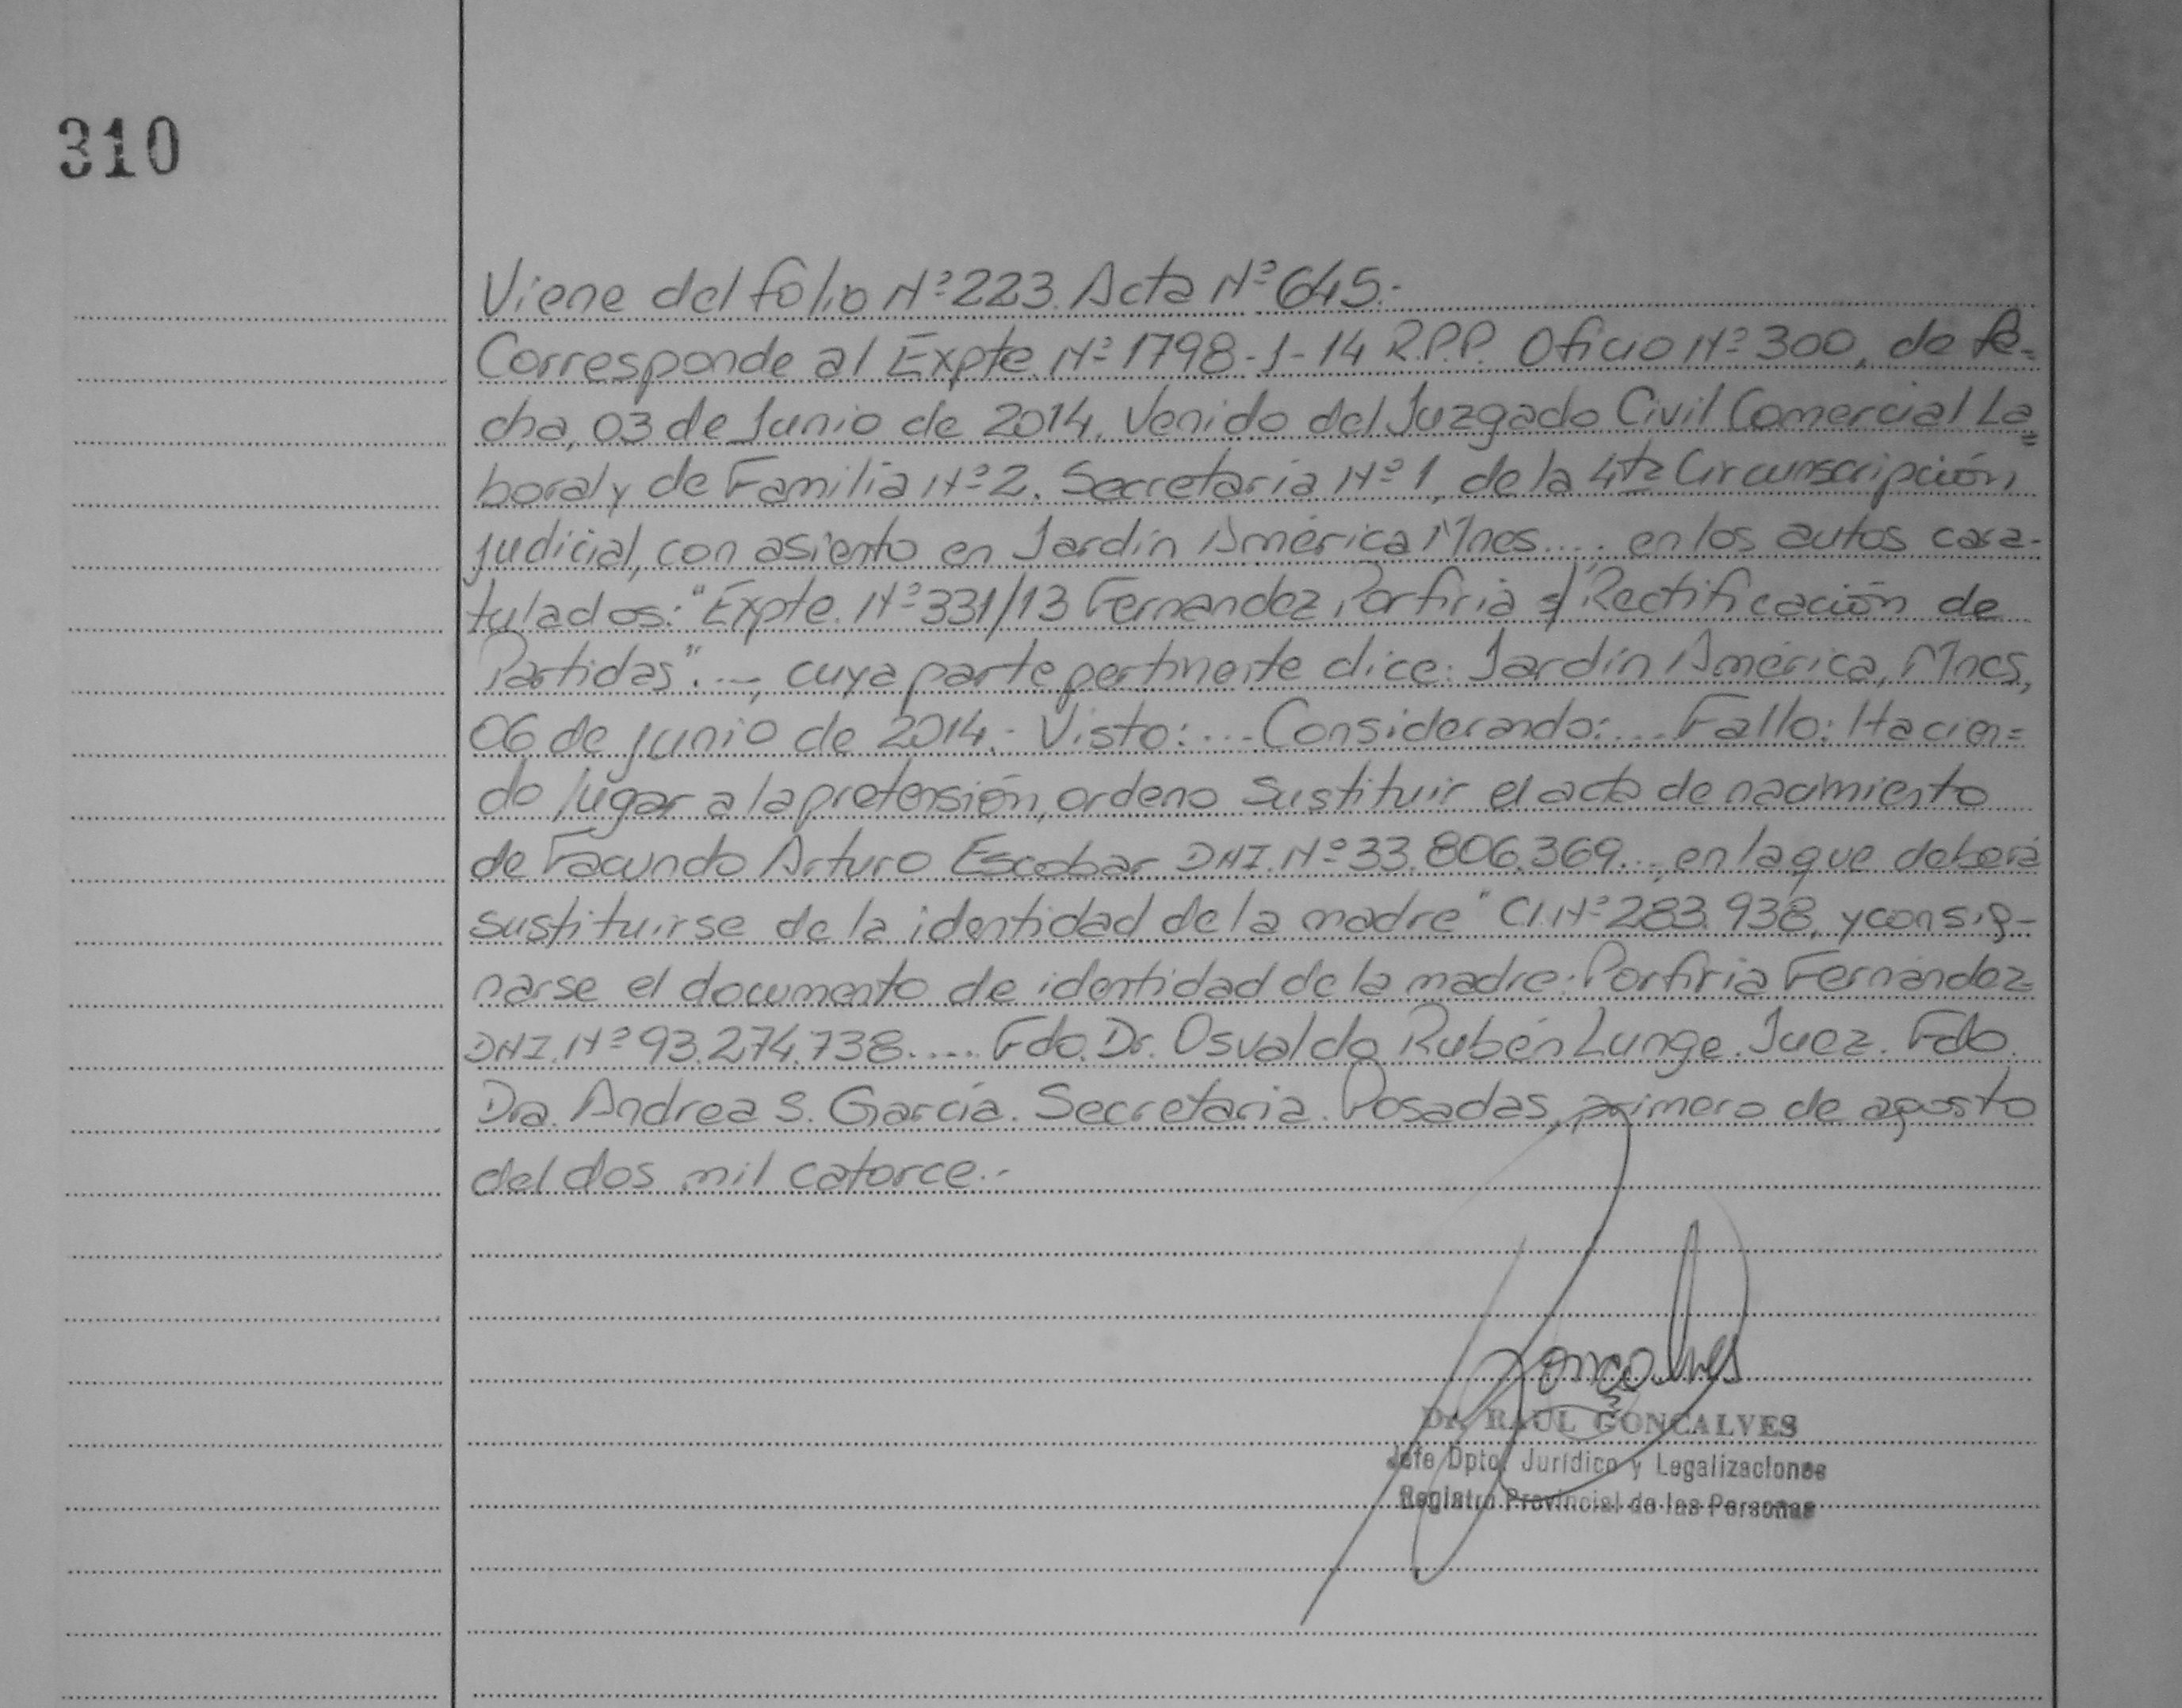 310
Viene del folio Nº 223. Acta Nº 645.-
Corresponde al Expte. Nº 1798-J-14 R.P.P. Oficio Nº 300, de fe=
cha, 03 de Junio de 2014. Venido del Juzgado Civil Comercial La=
boral y de Familia Nº 2. Secretaría Nº 1, de la 4ta Circunscripción
judicial, con asiento en Jardín América Mnes....; en los autos cara-
tulados: "Expte. Nº 331/13 Fernandez Porfiria s/ Rectificación de
Partidas"...-, cuya parte pertinente dice: Jardín América, Mnes,
06 de junio de 2014.- Visto:.... Considerando:.... Fallo: Hacien=
do lugar a la pretensión, ordeno sustituir el acta de nacimiento
de Facundo Arturo Escobar DNI. Nº 33.806.369..., en la que deberá
sustituirse de la identidad de la madre "CI. Nº 283.938, y consig-
narse el documento de identidad de la madre: Porfiria Fernández
DNI. Nº 93.274.738..... Fdo. Dr. Osvaldo Rubén Lunge. Juez. Fdo.
Dra. Andrea S. García. Secretaria. Posadas, primero de agosto
del dos mil catorce.-
Gonçalves
Dr. RAUL GONCALVES
Jefe Dpto. Jurídico y Legalizaciones
Registro Provincial de las Personas